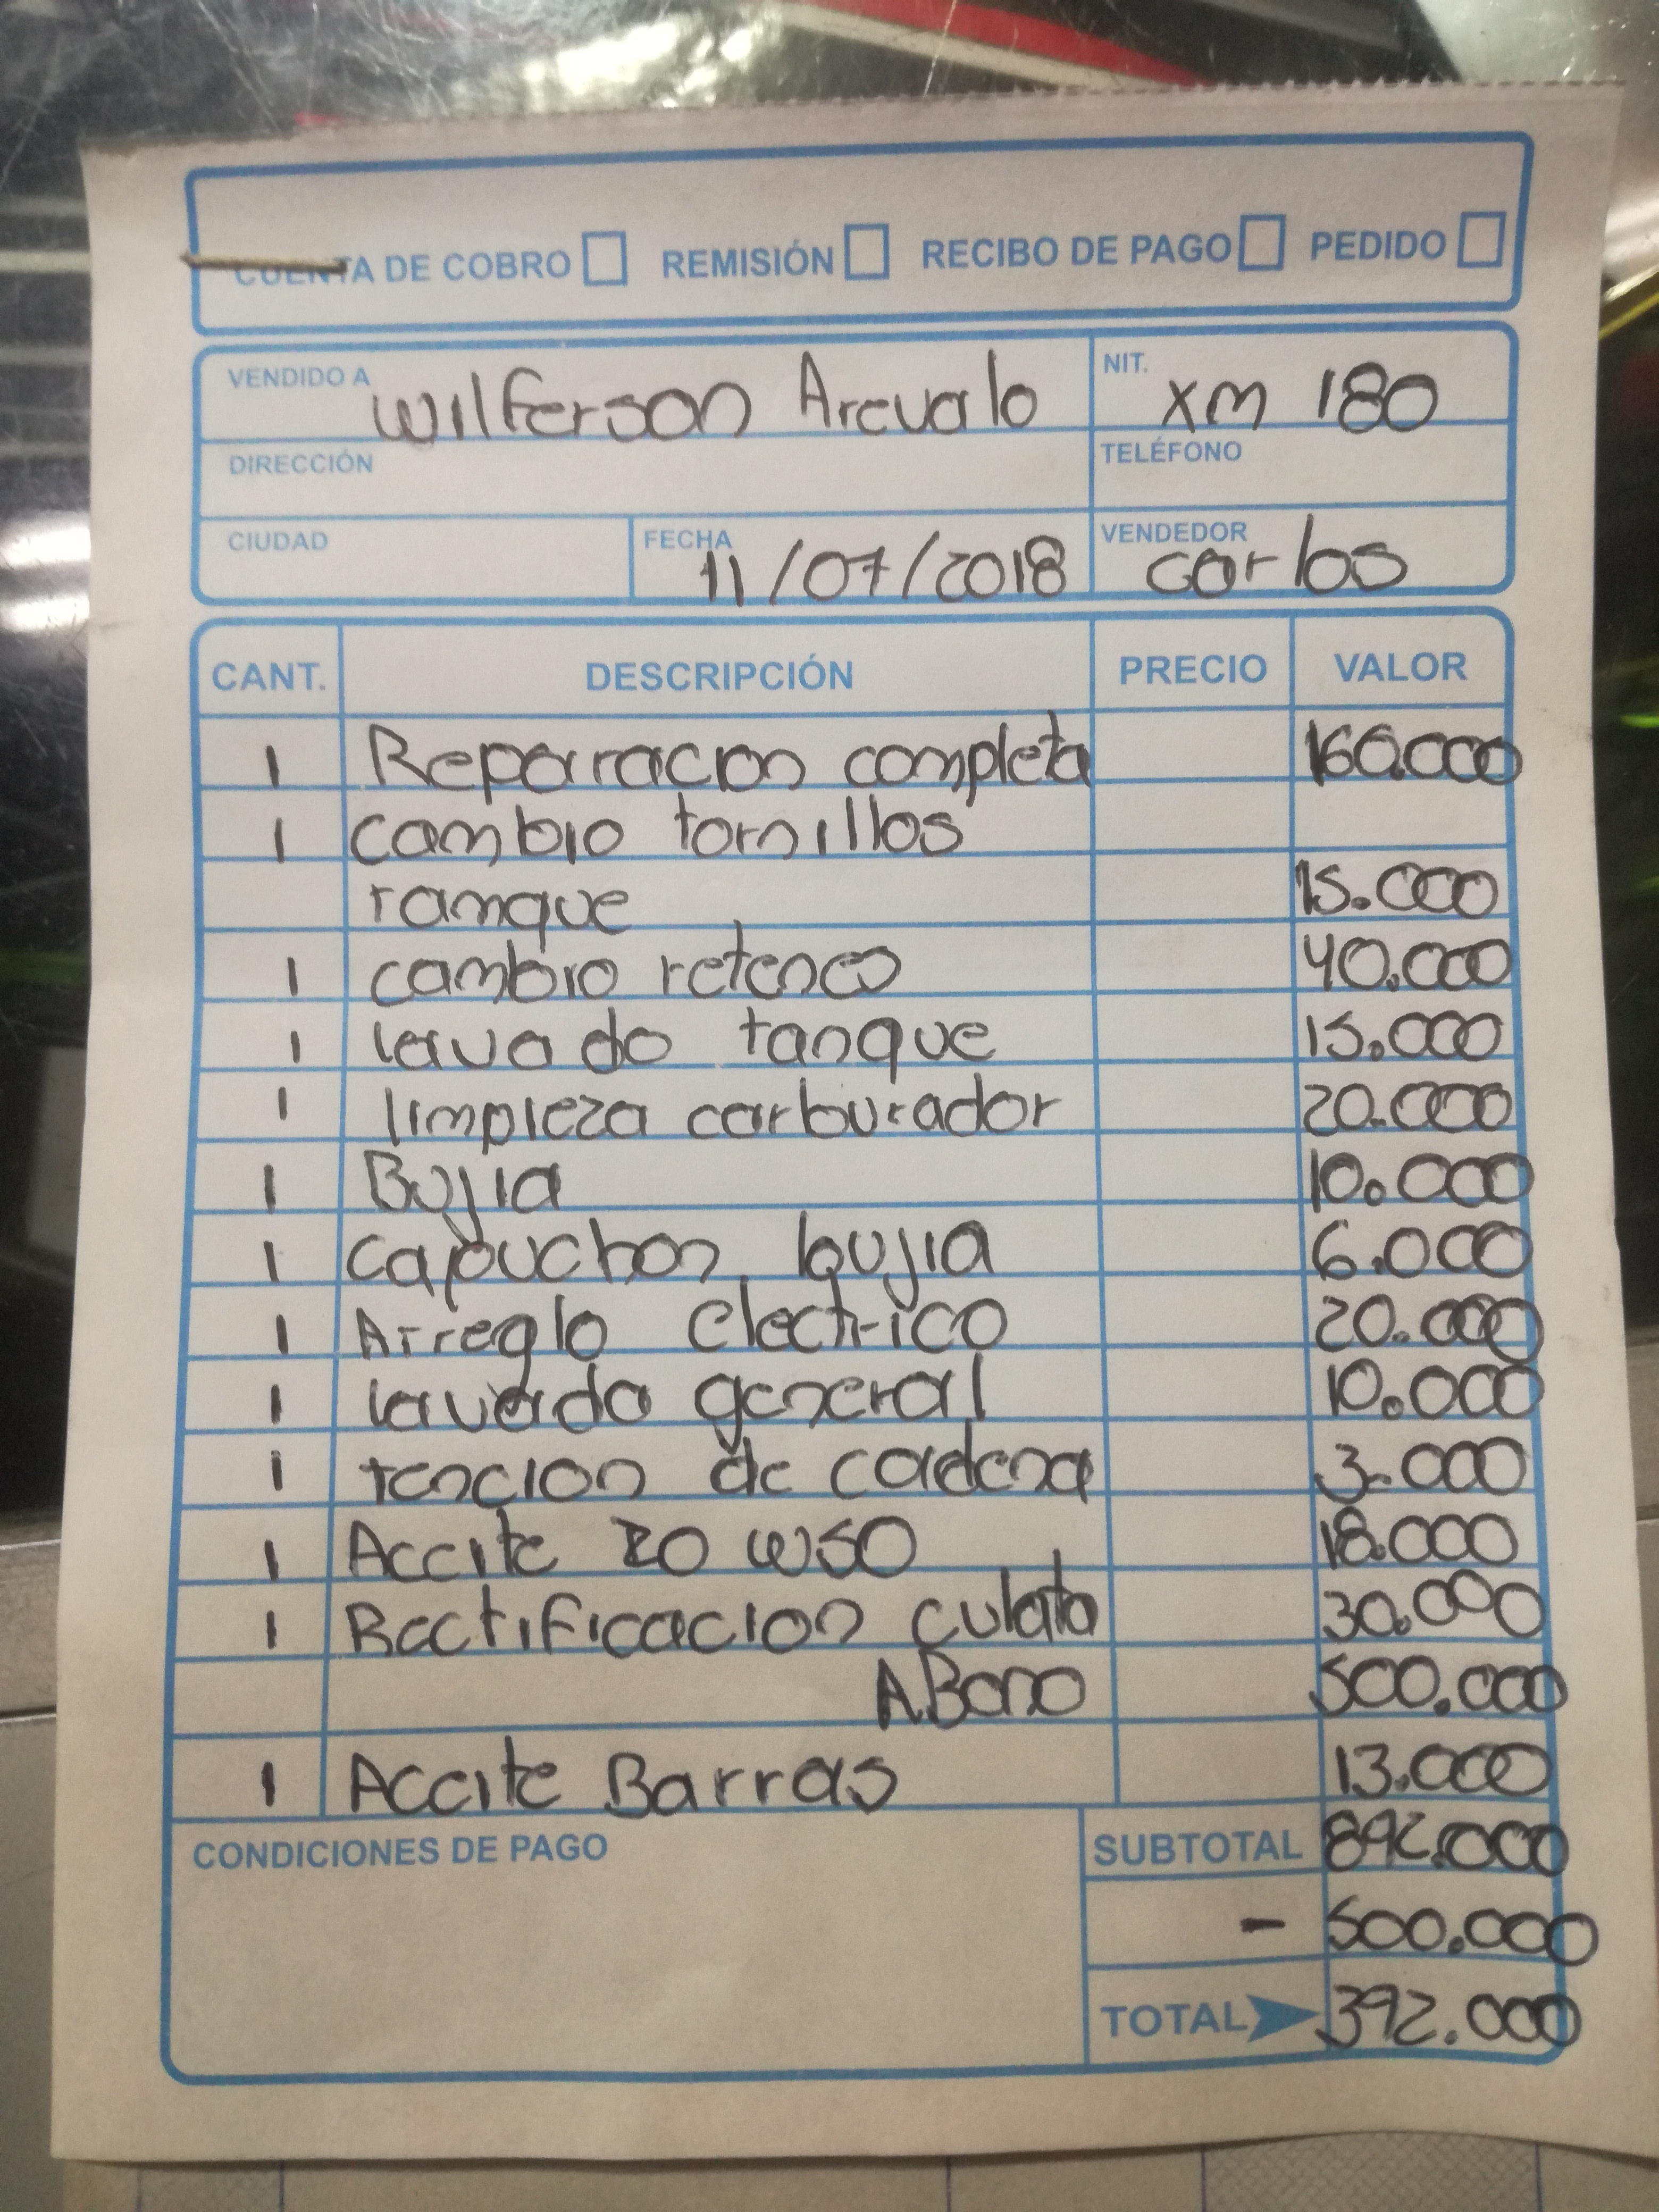 CUENTA DE COBRO REMISIÓN RECIBO DE PAGO PEDIDO
VENDIDO A Wilferson Arevalo NIT. XM 180
DIRECCIÓN TELÉFONO
CIUDAD FECHA 11/07/2018 VENDEDOR carlos
CANT. DESCRIPCIÓN PRECIO VALOR
1 Reparracion completa 160.000
1 cambio tornillos
ranque 15.000
1 cambio retenes 40.000
1 lavado tanque 15.000
1 limpieza carburador 20.000
1 Bujia 10.000
1 capuchon bujia 6.000
1 Arreglo electrico 20.000
1 lavado general 10.000
1 tencion de cadena 3.000
1 Aceite 20 W50 18.000
1 Rectificacion culata 30.000
ABono 500.000
1 Aceite Barras 13.000
CONDICIONES DE PAGO SUBTOTAL 892.000
- 500.000
TOTAL 392.000